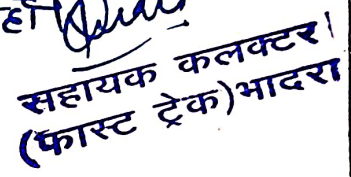 सहायक कलक्टर।
(फास्ट ट्रेक)भादरा